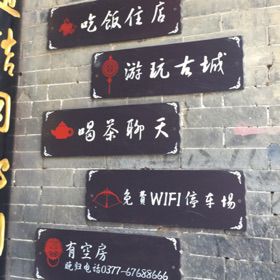 吃饭住店
游玩古城
喝茶聊天
免費WIFI停车場
有空房
晚归电话0377-67688666